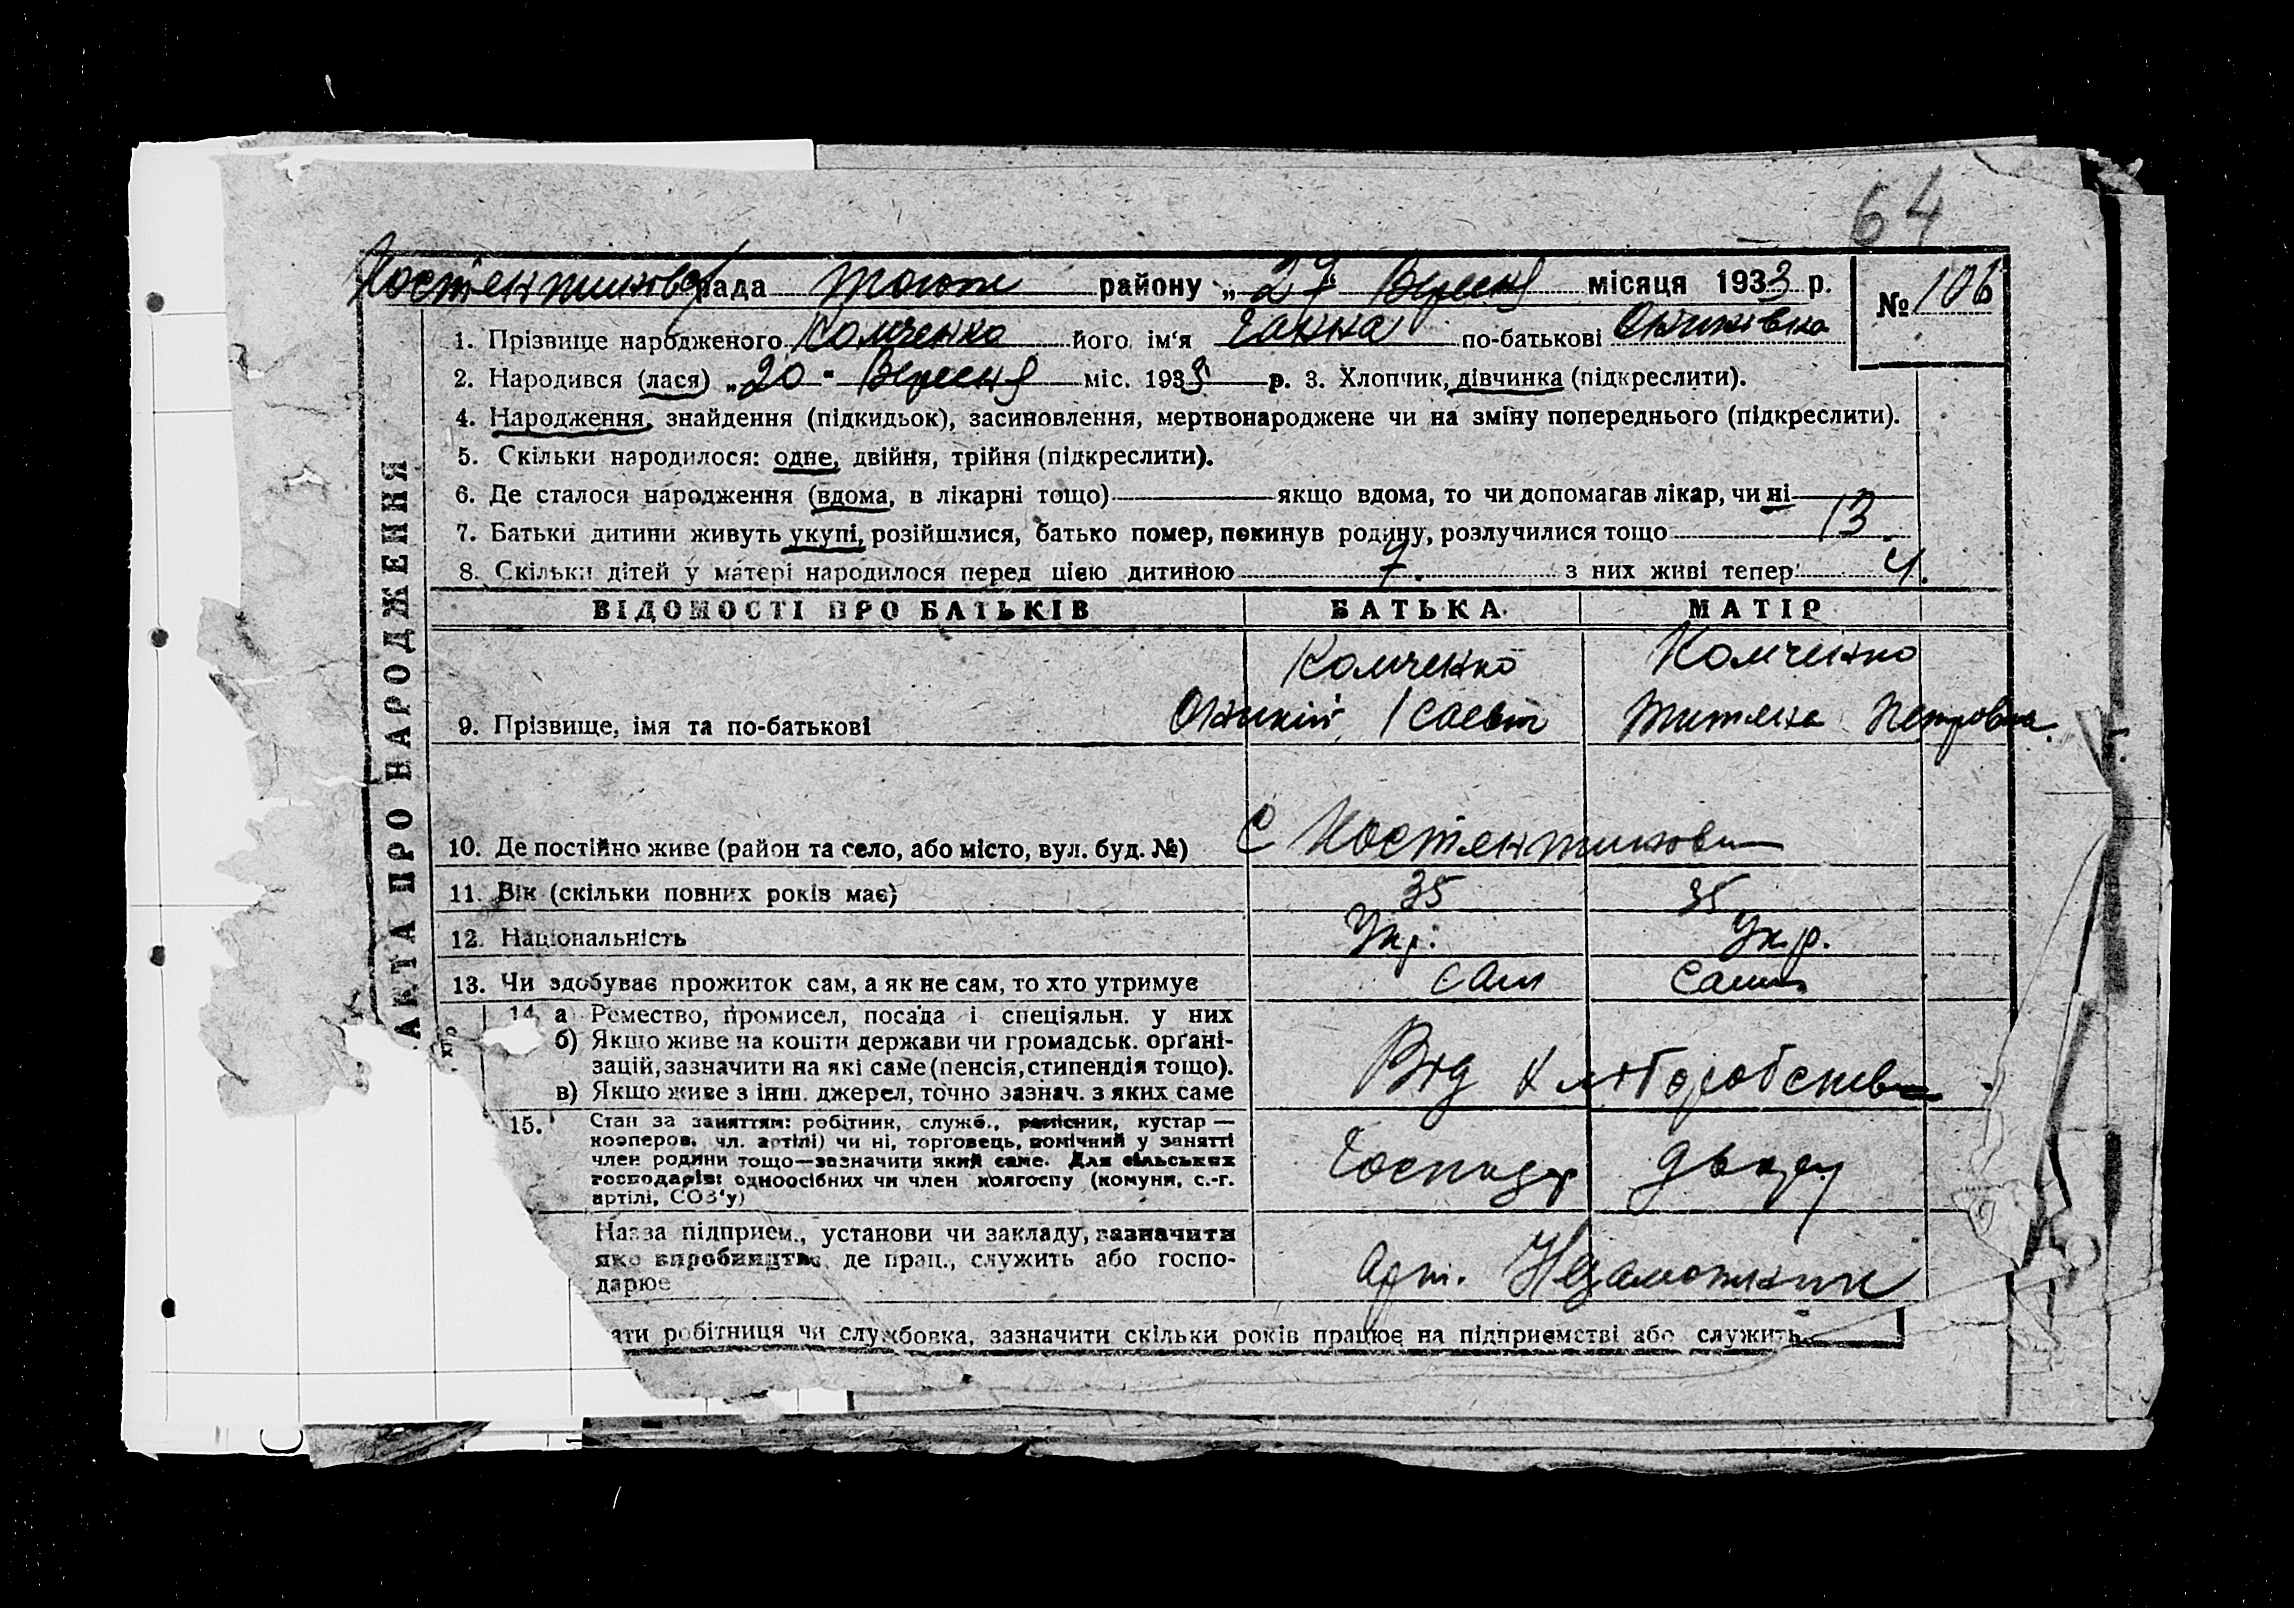 64
рада району „ 27 " Вересня місяця 1933 р.
№ 106
1. Прізвище народженого його ім'я Ганна по-батькові
2. Народився (лася) „20" Вересня міс. 1933 р. 3. Хлопчик, дівчинка (підкреслити).
4. Народження, знайдення (підкидьок), засиновлення, мертвонароджене чи на зміну попереднього (підкреслити).
5. Скільки народилося: одне, двійня, трійня (підкреслити).
6. Де сталося народження (вдома, в лікарні тощо) якщо вдома, то чи допомагав лікар, чи ні
7. Батьки дитини живуть укупі, розійшлися, батько помер, покинув родину, розлучилися тощо 13
8. Скільки дітей у матері народилося перед цією дитиною 7. з них живі тепер 4.
ВІДОМОСТІ ПРО БАТЬКІВ БАТЬКА МАТІР
9. Прізвище, імя та по-батькові Петровна.
10. Де постійно живе (район та село, або місто, вул. буд. №) С
11. Вік (скільки повних років має) 35 35
12. Національність Укр. Укр.
13. Чи здобуває прожиток сам, а як не сам, то хто утримує сам сама
14. а Ремество, промисел, посада і спеціяльн. у них
б) Якщо живе на кошти держави чи громадськ. орґані-
зацій, зазначити на які саме (пенсія, стипендія тощо).
в) Якщо живе з інш. джерел, точно зазнач. з яких саме
Від хліборобства
15. Стан за заняттям: робітник, служб., ремісник, кустар —
кооперов. чл. артілі) чи ні, торговець, помічний у занятті
член родини тощо—зазначити який саме. Для сільських
господарів: одноосібних чи член колгоспу (комуни, с.-г.
артілі, СОЗ'у)
Господар двору
Назва підприєм., установи чи закладу, зазначити
яке виробництво, де прац., служить або госпо-
дарює
Арт. Незаможник
ати робітниця чи службовка, зазначити скільки років працює на підприємстві або служить
АКТА ПРО НАРОДЖЕННЯ